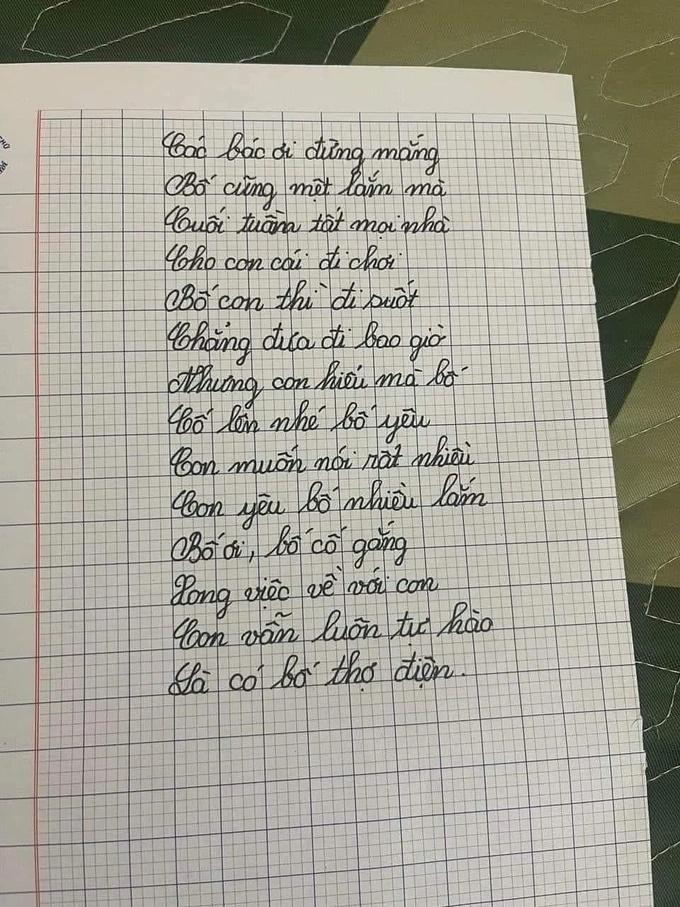 Các bác ơi đừng mắng
Bố cũng mệt lắm mà
Cuối tuần tất mọi nhà
Cho con cái đi chơi
Bố con thì đi suốt
Chẳng đưa đi bao giờ
Nhưng con hiểu mà bố
Cố lên nhé bố yêu
Con muốn nói rất nhiều
Con yêu bố nhiều lắm
Bố ơi, bố cố gắng
Xong việc về với con
Con vẫn luôn tự hào
Là có bố thợ điện.